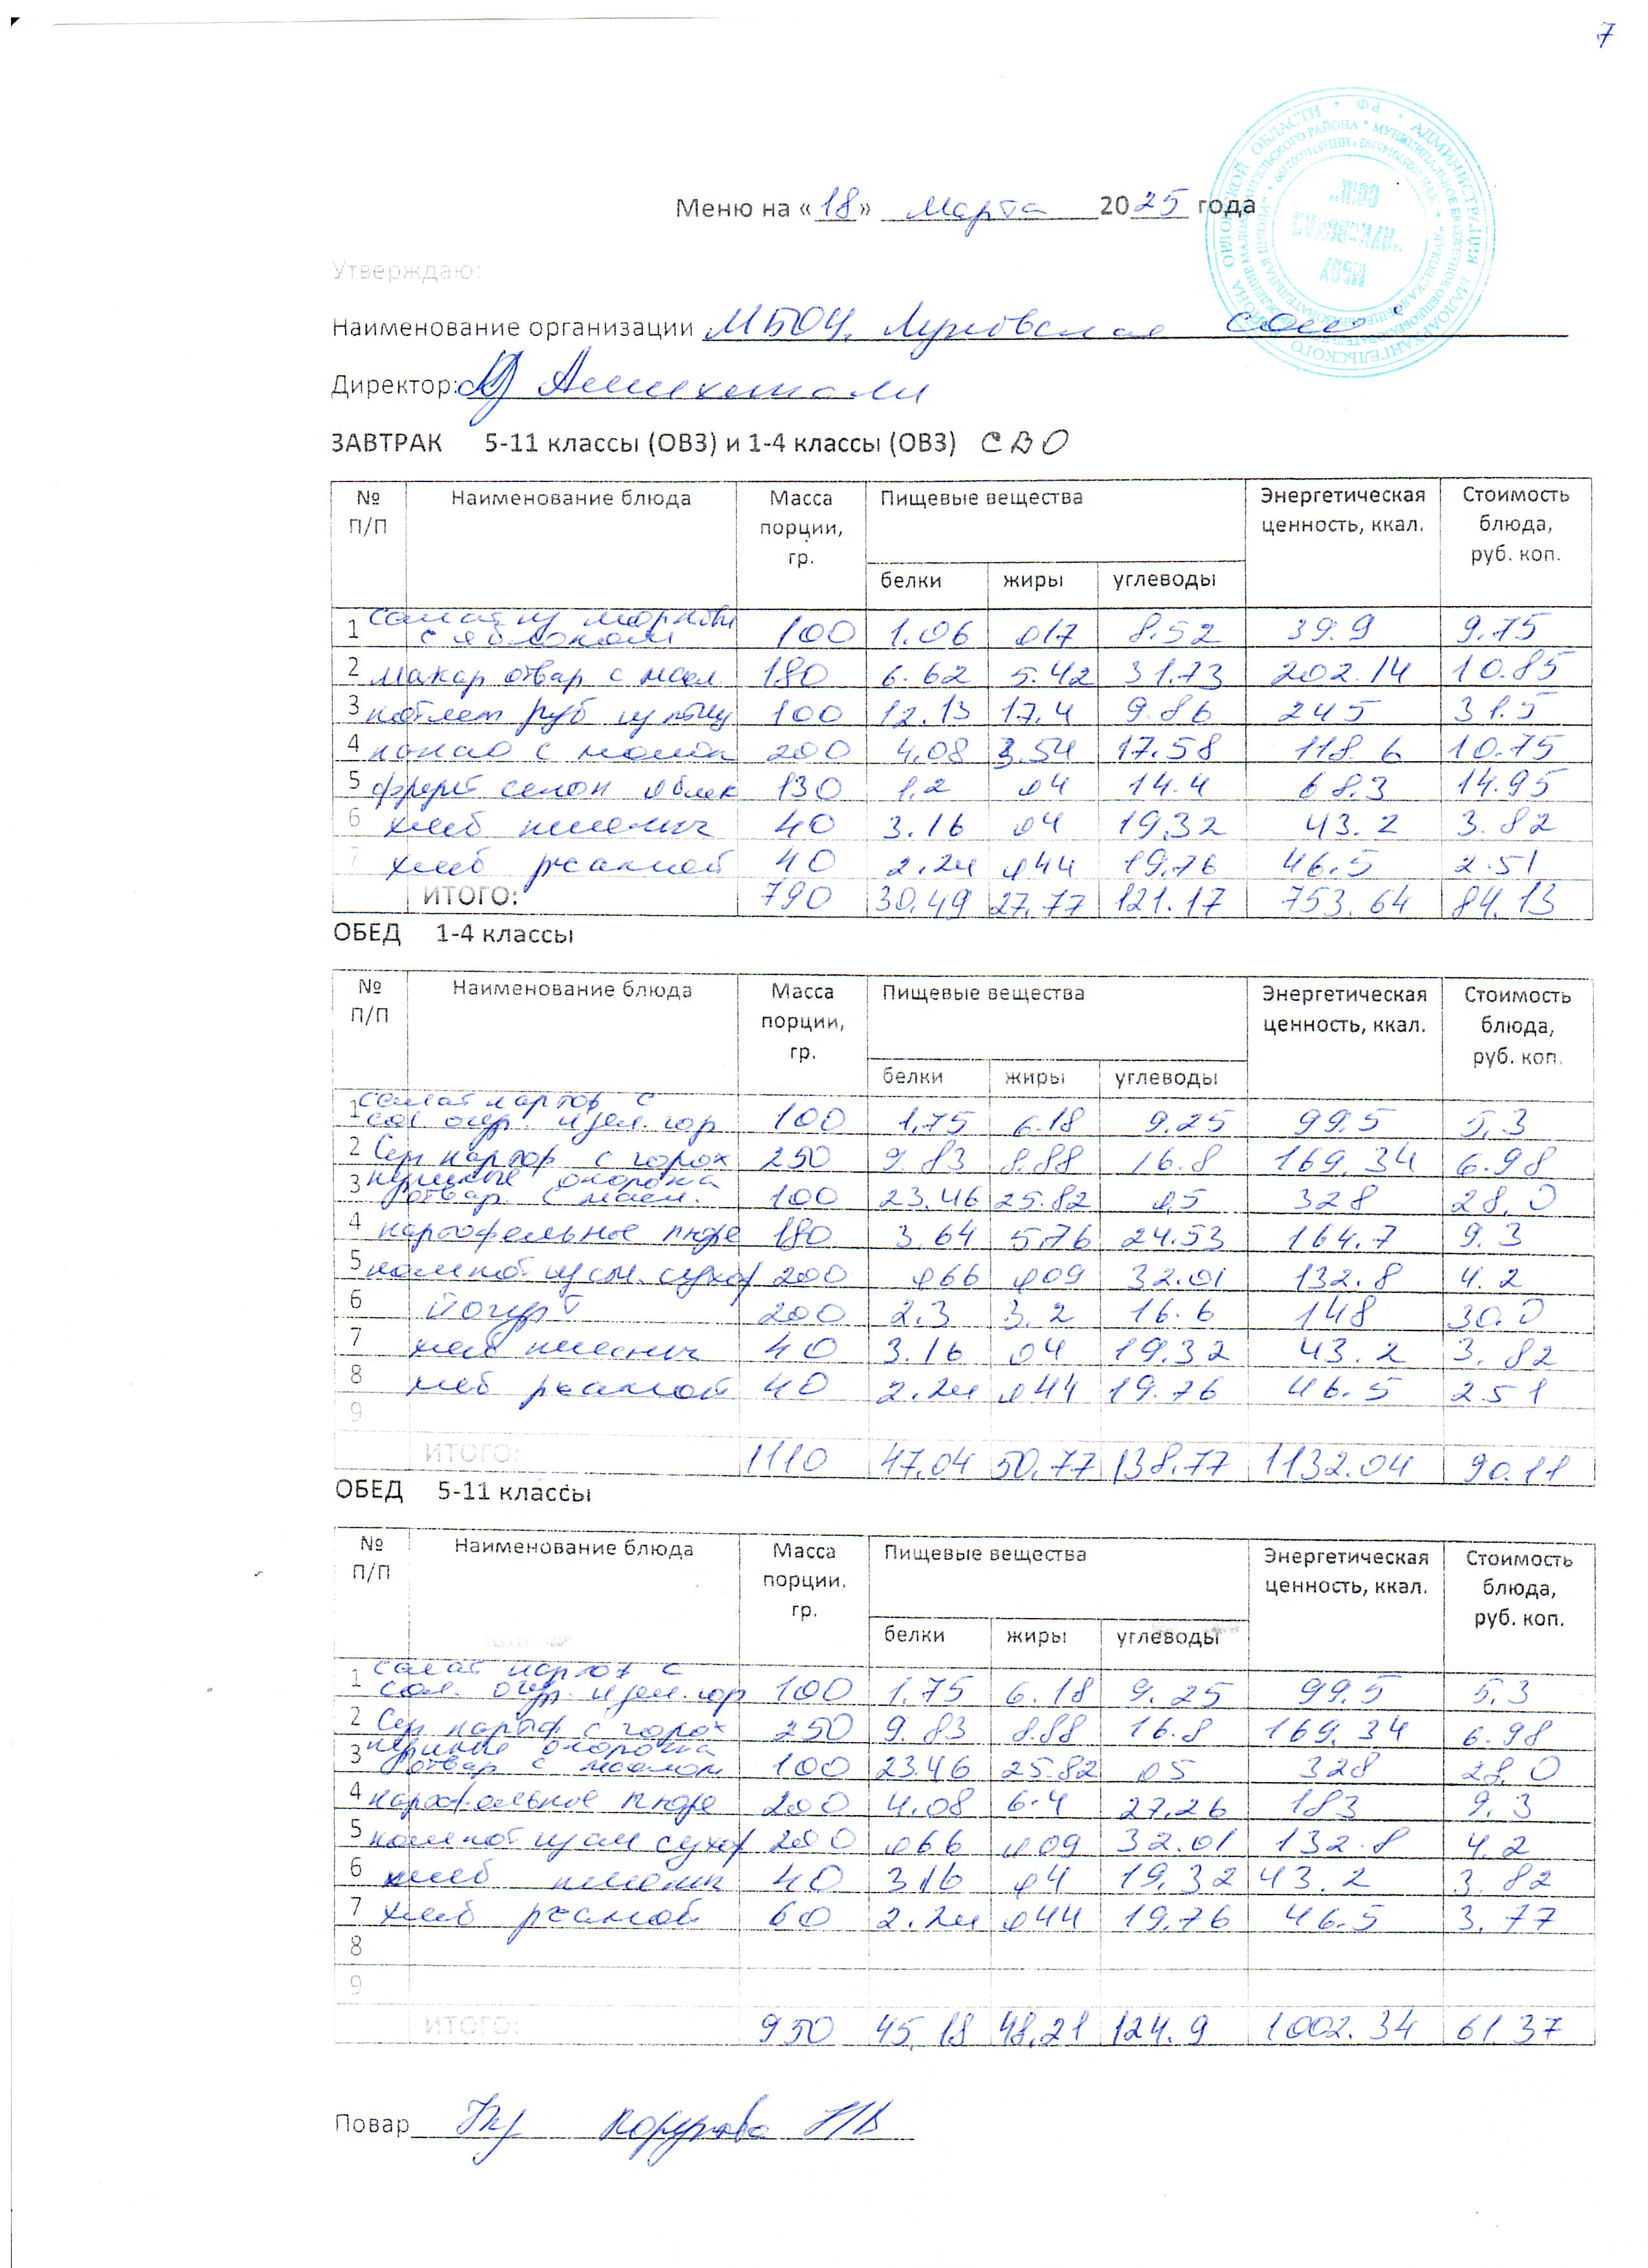 7
Меню на «18» Марта 2025 года
Утверждаю:
Наименование организации МБОУ, Луковская сош
Директор:
ЗАВТРАК 5-11 классы (ОВЗ) и 1-4 классы (ОВЗ) СВО
№ П/П Наименование блюда Масса порции, гр. Пищевые вещества Энергетическая ценность, ккал. Стоимость блюда, руб. коп.
белки жиры углеводы
1 салат из моркови с яблоком 100 1.06 017 8.52 39.9 9.75
2 макар отвар с масл. 180 6.62 5.42 31.73 202.14 10.85
3 котлет руб из птиц 100 12.13 17.4 9.86 245 31.5
4 какао с молок 200 4.08 3.54 17.58 118.6 10.75
5 фрукт сезон яблок 130 1,2 04 14.4 68.3 14.95
6 хлеб пшенич 40 3.16 04 19,32 43.2 3.82
7 хлеб ржаной 40 2.24 044 19.76 46.5 2.51
ИТОГО: 790 30.49 27.77 121.17 753.64 84.13
ОБЕД 1-4 классы
№ П/П Наименование блюда Масса порции, гр. Пищевые вещества Энергетическая ценность, ккал. Стоимость блюда, руб. коп.
белки жиры углеводы
1 салат картоф с сол огур. и зел. гор 100 1,75 6.18 9.25 99.5 5,3
2 Суп картоф с горох 250 9.83 8.88 16.8 169.34 6.98
3 куриные окорочка отвар. с масл. 100 23.46 25.82 05 328 28.0
4 картофельное пюре 180 3.64 5.76 24.53 164.7 9.3
5 компот из см. сухоф 200 066 009 32.01 132.8 4.2
6 йогурт 200 2.3 3.2 16.6 148 30.0
7 хлеб пшенич 40 3.16 04 19.32 43.2 3.82
8 хлеб ржаной 40 2.24 044 19.76 46.5 2.51
9
ИТОГО: 1110 47.04 50.77 138.77 1132.04 90.11
ОБЕД 5-11 классы
№ П/П Наименование блюда Масса порции, гр. Пищевые вещества Энергетическая ценность, ккал. Стоимость блюда, руб. коп.
белки жиры углеводы
1 салат картоф с сол. огур. и зел. гор 100 1.75 6.18 9.25 99.5 5.3
2 Суп картоф с горох 250 9.83 8.88 16.8 169.34 6.98
3 куриные окорочка отвар с маслом 100 23.46 25.82 05 328 28.0
4 картофельное пюре 200 4.08 6.4 27.26 183 9.3
5 компот из см сухоф 200 066 009 32.01 132.8 4.2
6 хлеб пшенич 40 3.16 04 19.32 43.2 3.82
7 хлеб ржаной 60 2.24 044 19.76 46.5 3.77
8
9
ИТОГО: 950 45,18 48,21 124.9 1002.34 61 37
Повар